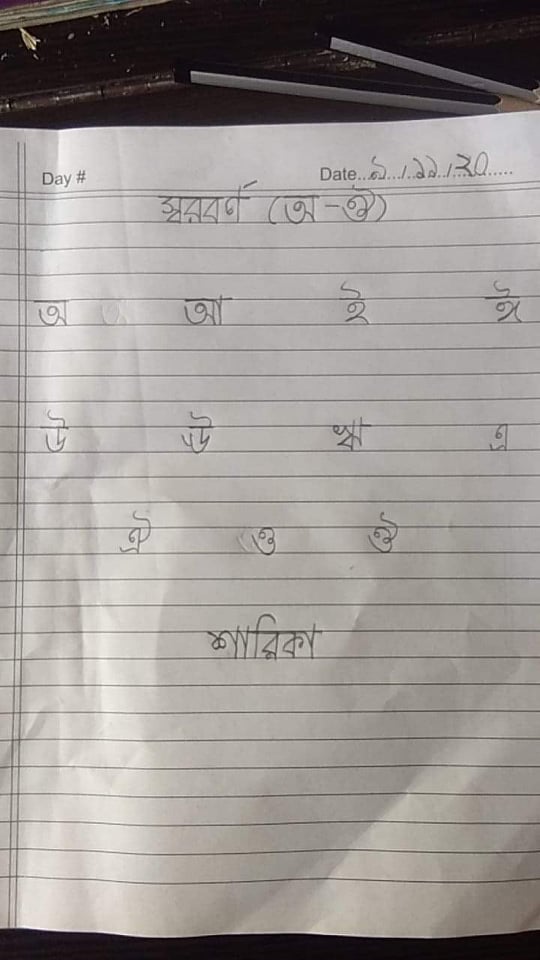 Day # Date...৯./.১১./.২০.....
স্বরবর্ণ (অ-ঔ)
অ আ ই ঈ
উ ঊ ঋ এ
ঐ ও ঔ
শারিকা